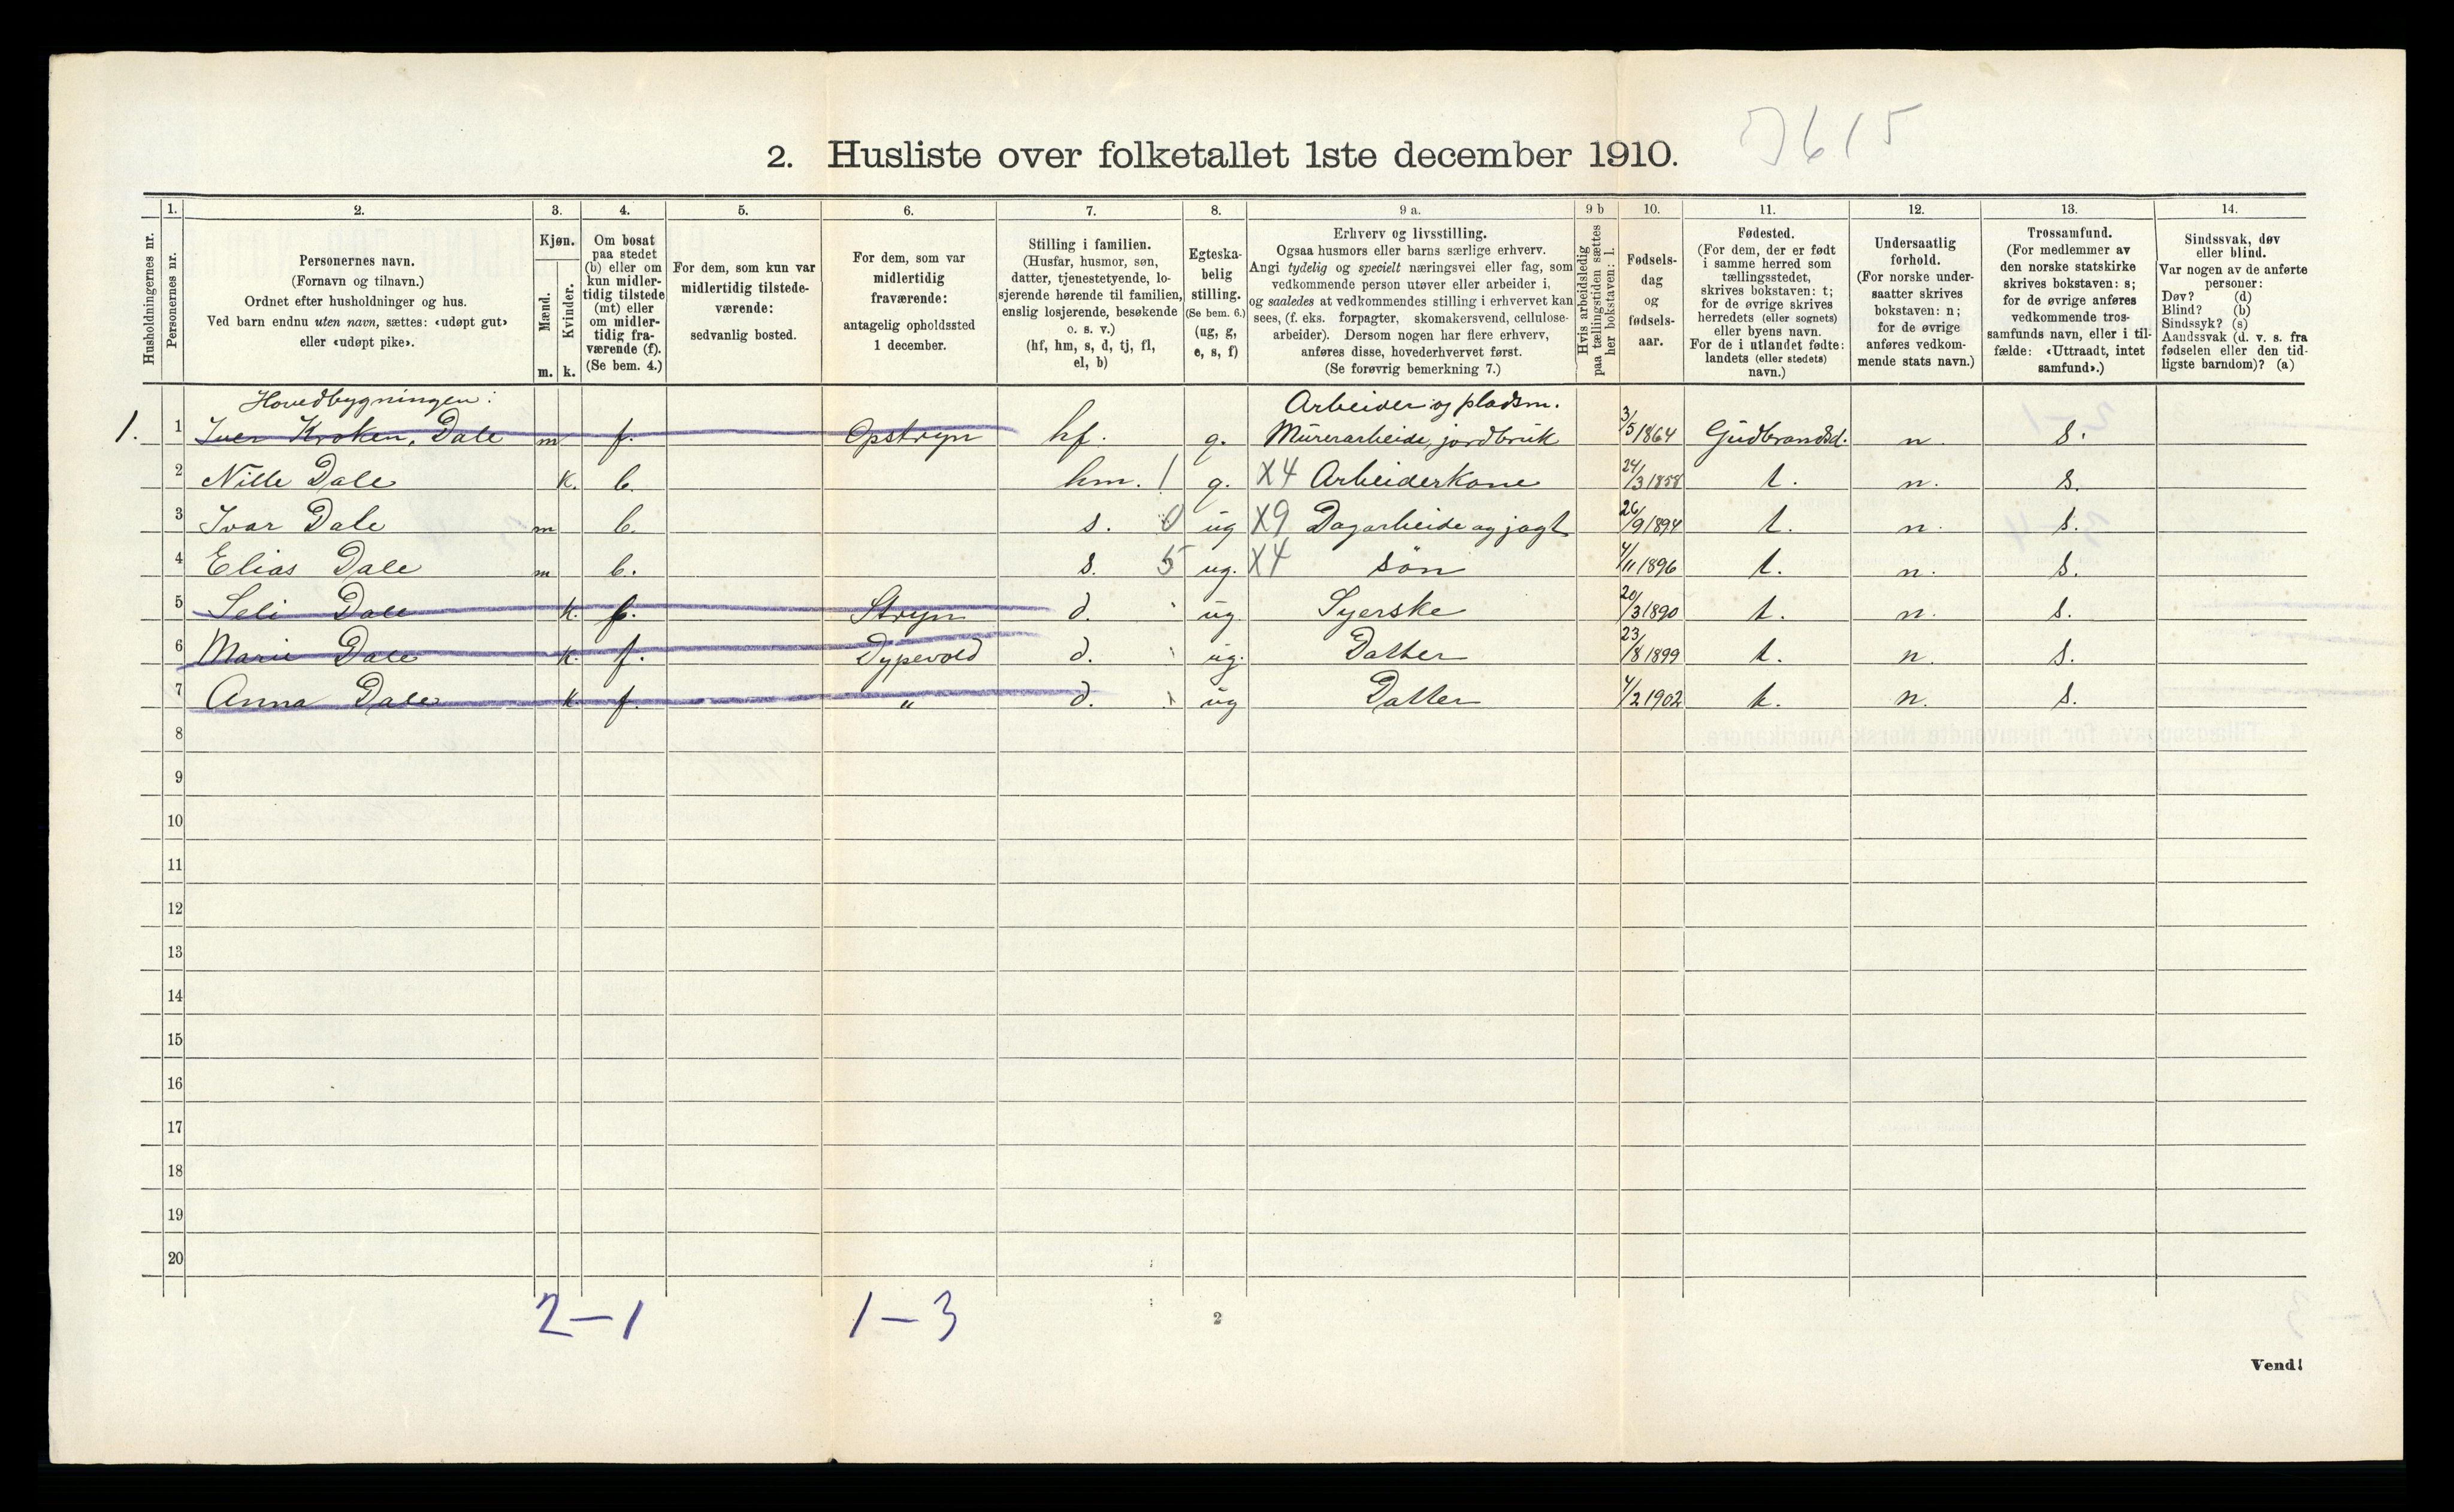 2. Husliste over folketallet 1ste december 1910.
Husholdningernes nr.
1.
Personernes nr.
2.
Personernes navn.
(Fornavn og tilnavn.)
Ordnet efter husholdninger og hus.
Ved barn endnu uten navn, sættes: «udøpt gut»
eller «udøpt pike».
3.
Kjøn.
Mænd.
Kvinder.
m. k.
4.
Om bosat
paa stedet
(b) eller om
kun midler-
tidig tilstede
(mt) eller
om midler-
tidig fra-
værende (f).
(Se bem. 4.)
5.
For dem, som kun var
midlertidig tilstede-
værende:
sedvanlig bosted.
6.
For dem, som var
midlertidig
fraværende:
antagelig opholdssted
1 december.
7.
Stilling i familien.
(Husfar, husmor, søn,
datter, tjenestetyende, lo-
sjerende hørende til familien,
enslig losjerende, besøkende
o. s. v.)
(hf, hm, s, d, tj, fl,
el, b)
8.
Egteska-
belig
stilling.
(Se bem. 6.)
(ug, g,
e, s, f)
9 a.
Erhverv og livsstilling.
Ogsaa husmors eller barns særlige erhverv.
Angi tydelig og specielt næringsvei eller fag, som
vedkommende person utøver eller arbeider i,
og saaledes at vedkommendes stilling i erhvervet kan
sees, (f. eks. forpagter, skomakersvend, cellulose-
arbeider). Dersom nogen har flere erhverv,
anføres disse, hovederhvervet først.
(Se forøvrig bemerkning 7.)
9 b
Hvis arbeidsledig
paa tællingstiden sættes
her bokstaven: l.
10.
Fødsels-
dag
og
fødsels-
aar.
11.
Fødested.
(For dem, der er født
i samme herred som
tællingsstedet,
skrives bokstaven: t;
for de øvrige skrives
herredets (eller sognets)
eller byens navn.
For de i utlandet fødte:
landets (eller stedets)
navn.)
12.
Undersaatlig
forhold.
(For norske under-
saatter skrives
bokstaven: n;
for de øvrige
anføres vedkom-
mende stats navn.)
13.
Trossamfund.
(For medlemmer av
den norske statskirke
skrives bokstaven: s;
for de øvrige anføres
vedkommende tros-
samfunds navn, eller i til-
fælde: «Uttraadt, intet
samfund».)
14.
Sindssvak, døv
eller blind.
Var nogen av de anførte
personer:
Døv? (d)
Blind? (b)
Sindssyk? (s)
Aandssvak (d. v. s. fra
fødselen eller den tid-
ligste barndom)? (a)
Hovedbygningen: Arbeider og pladsm.
1. 1 Iver Kroken, Dale m f. Opstryn hf. g. Murerarbeide, jordbruk 3/5 1864 Gudbrandsd. n. s.
2 Nille Dale k. b. hm. 1 g. X4 Arbeiderkone 24/3 1858 t. n. s.
3 Ivar Dale m b. s. 0 ug X9 Dagarbeide og jagt 26/9 1894 t. n. s.
4 Elias Dale m b. s. 5 ug. X4 søn 4/11 1896 t. n. s.
5 Seli Dale k. f. Stryn d. ug. Syerske 20/3 1890 t. n. s.
6 Marie Dale k. f. Dypevold d. ug. Datter 23/8 1899 t. n. s.
7 Anna Dale k f. " d. ug Datter 4/2 1902 t. n. s.
8
9
10
11
12
13
14
15
16
17
18
19
20
2-1 1-3
2
Vend!